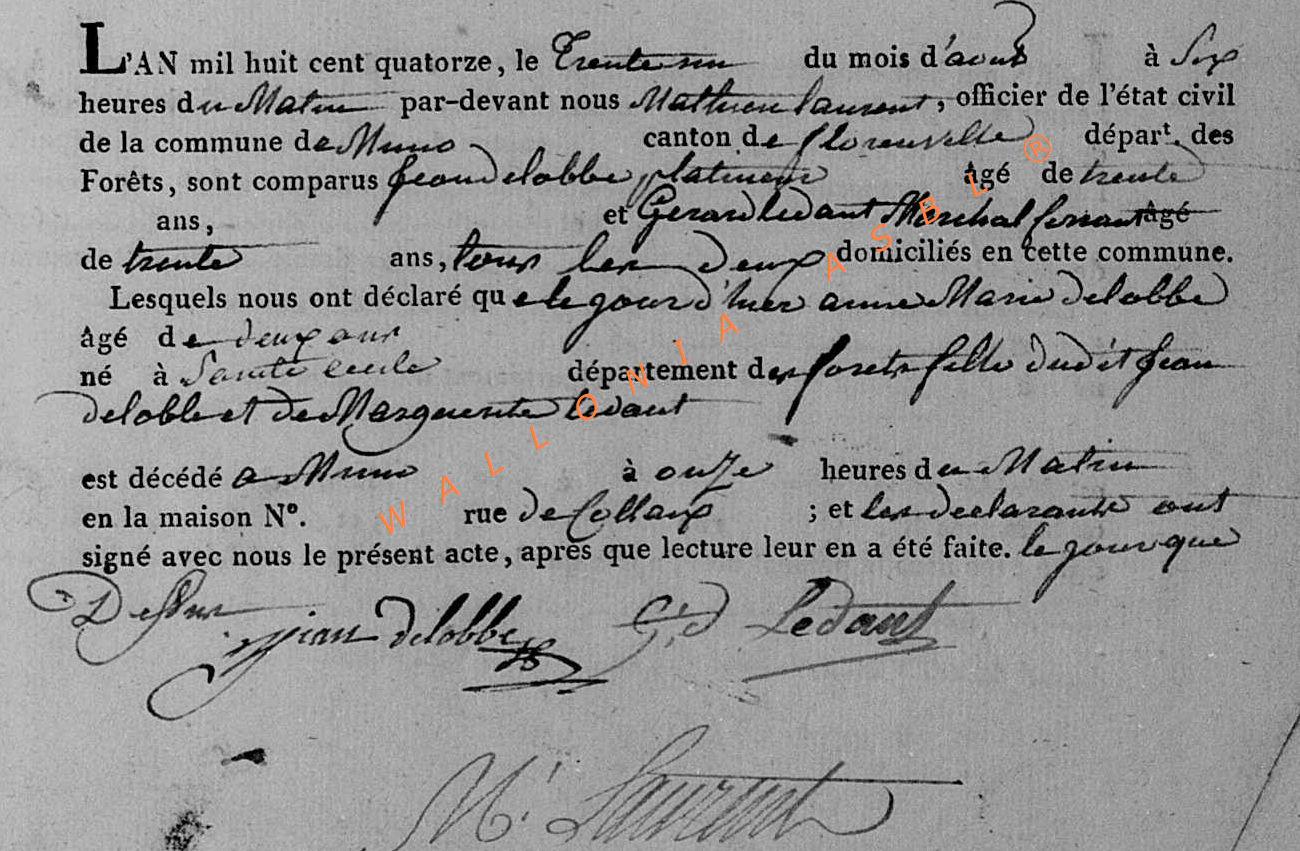 L'AN mil huit cent quatorze, le Trente un du mois d'aout à Six
heures du Matin par-devant nous Mathieu laurent, officier de l'état civil
de la commune de Muno canton de florenville dépar.t des
Forêts, sont comparus Jean delobbe platineur âgé de trente
ans, et Gerard ledant Marchal ferrant âgé
de trente ans, tous les deux domiciliés en cette commune.
Lesquels nous ont déclaré que le jour d'hier anne Marie delobbe
âgé de deux ans
né à Sainte cecile département des forets fille dudit Jean
delobbe et de Marguerite ledant
est décédé a Muno à onze heures du Matin
en la maison N°. rue de Collaux ; et les declarants ont
signé avec nous le présent acte, après que lecture leur en a été faite. le jour que
Dessus
jean delobbe G;d Ledant
M; Laurent
WALLONIA ASBL ®